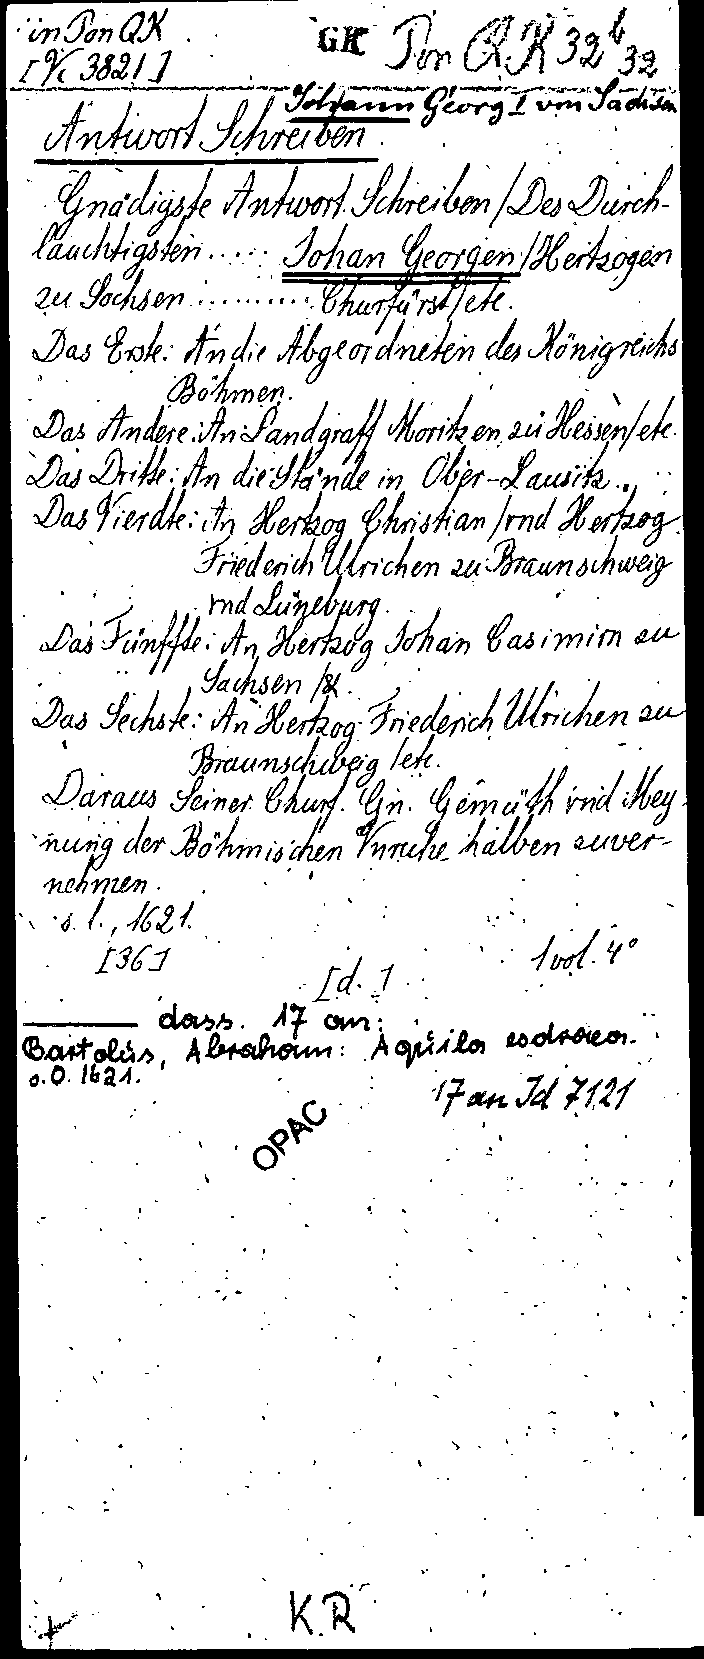 in Pon QK
GK Pon QK 32 b 32
[Vc 3821]
Johann Georg I von Sachsen
Antwort Schreiben
Gnädigste Antwort Schreiben / Des Durch-
läuchtigsten ..... Johan Georgen / Hertzogen
zu Sachsen .......... Churfürst / etc.
Das Erste: An die Abgeordneten des Königreichs
Böhmen.
Das Andere: An Landgraff Moritzen zu Hessen / etc.
Das Dritte: An die Stände in Ober-Lausitz.
Das Vierdte: An Hertzog Christian / vnd Hertzog
Friederich Ulrichen zu Braunschweig
vnd Lüneburg.
Das Fünffte: An Hertzog Johan Casimirn zu
Sachsen / &.
Das Sechste: An Hertzog Friederich Ulrichen zu
Braunschweig / etc.
Daraus Seiner Churf. Gn. Gemüth vnd Mey-
nung der Böhmischen Vnruhe halben zuver-
nehmen.
s. l., 1621.
[36] [d. ] 1 vol. 4°
——— dass. 17 an:
Bartolus, Abraham: Aquila esdraea.
o. O. 1621.
17 an Id 7121
OPAC
K.R